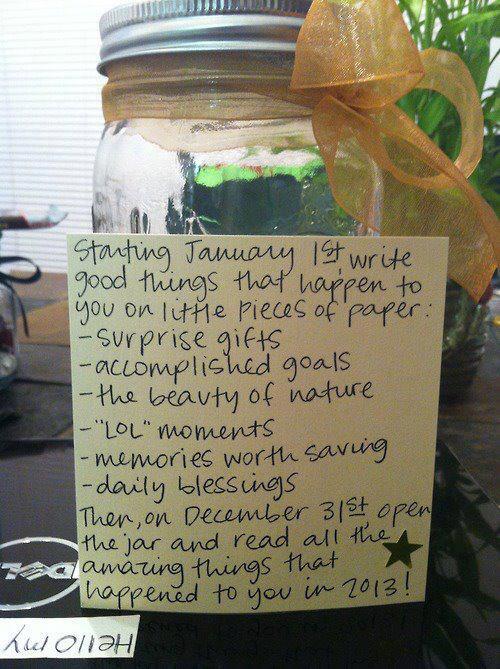 Starting January 1st, write
good things that happen to
you on little pieces of paper:
-surprise gifts
-accomplished goals
-the beauty of nature
-"LOL" moments
-memories worth saving
-daily blessings
Then, on December 31st, open
the jar and read all the
amazing things that
happened to you in 2013!
DELL
Hello my